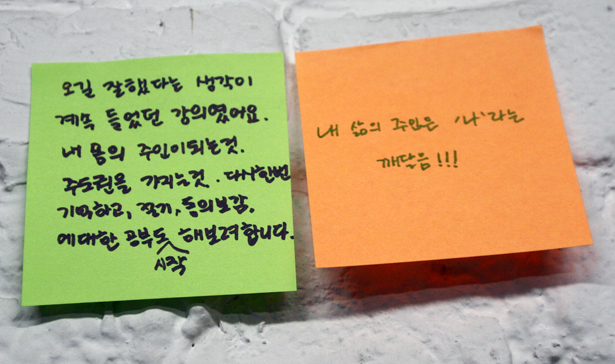 오길 잘했다는 생각이
계속 들었던 강의였어요.
내 몸의 주인이되는것.
주도권을 가지는것. 다시한번
기억하고, 정기, 동의보감.
에대한 공부도 해보려합니다.
시작
내 삶의 주인은 '나'라는
깨달음!!!